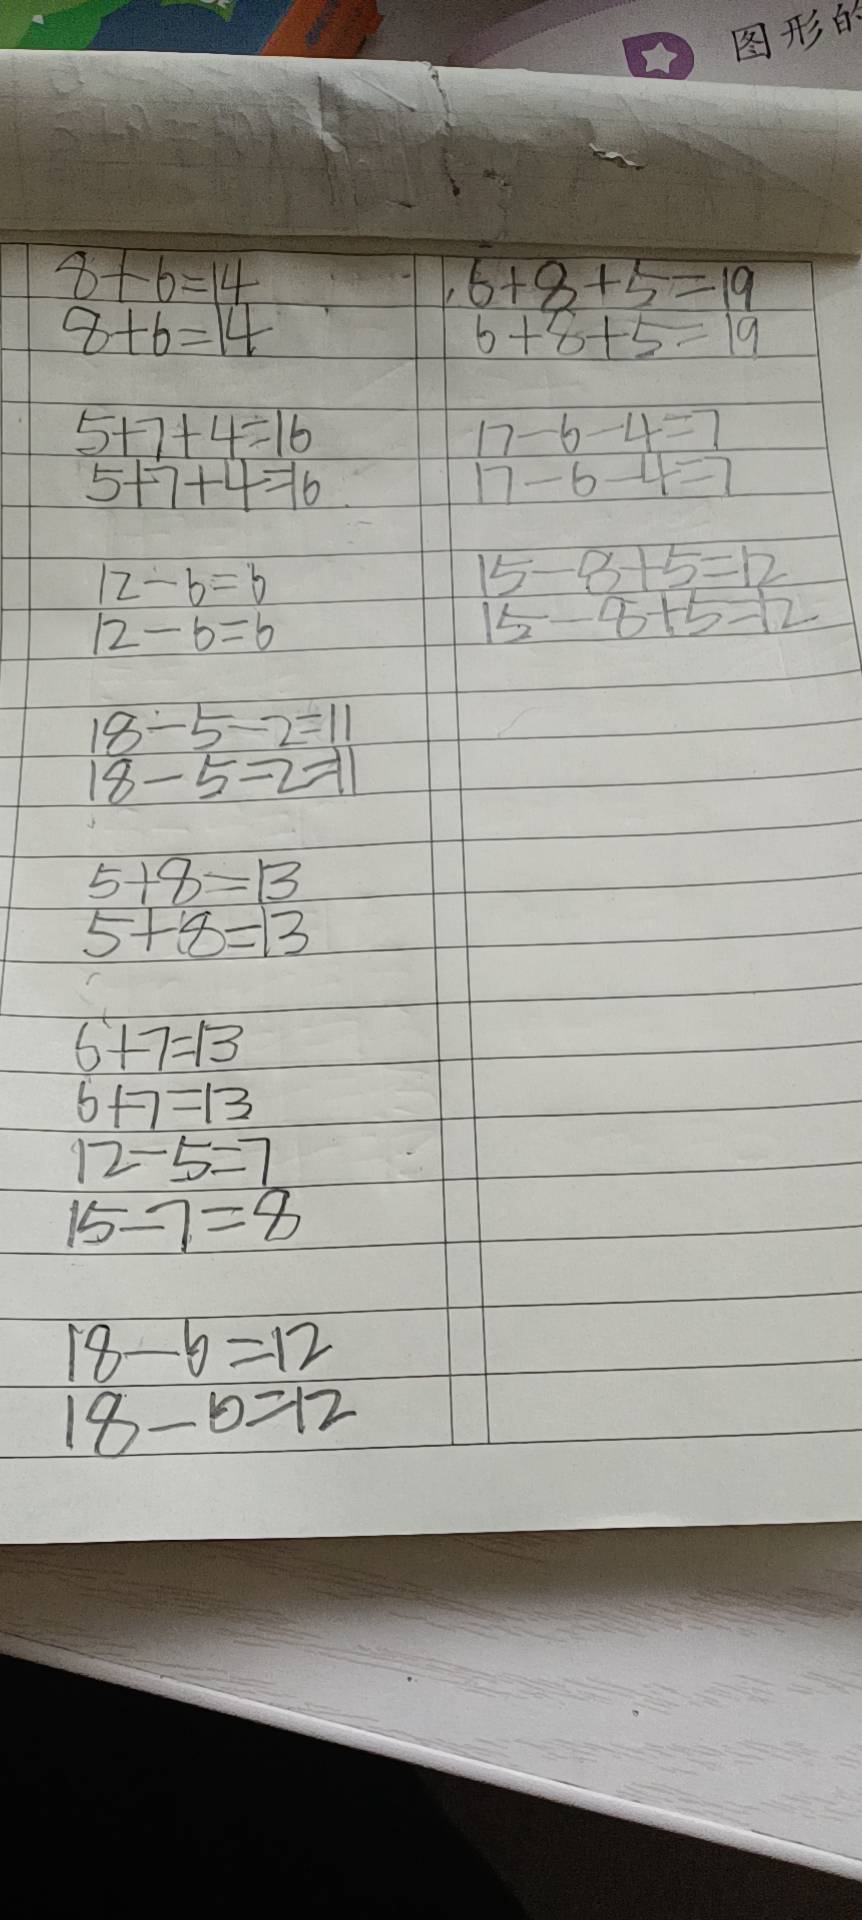 图形的
8+6=14
8+6=14
5+7+4=16
5+7+4=16
12-6=6
12-6=6
18-5-2=11
18-5=2=11
5+8=13
5+8=13
6+7=13
6+7=13
12-5=7
15-7=8
18-6=12
18-6=12
6+8+5=19
6+8+5=19
17-6-4=7
17-6-4=7
15-8+5=12
15-8+5=12